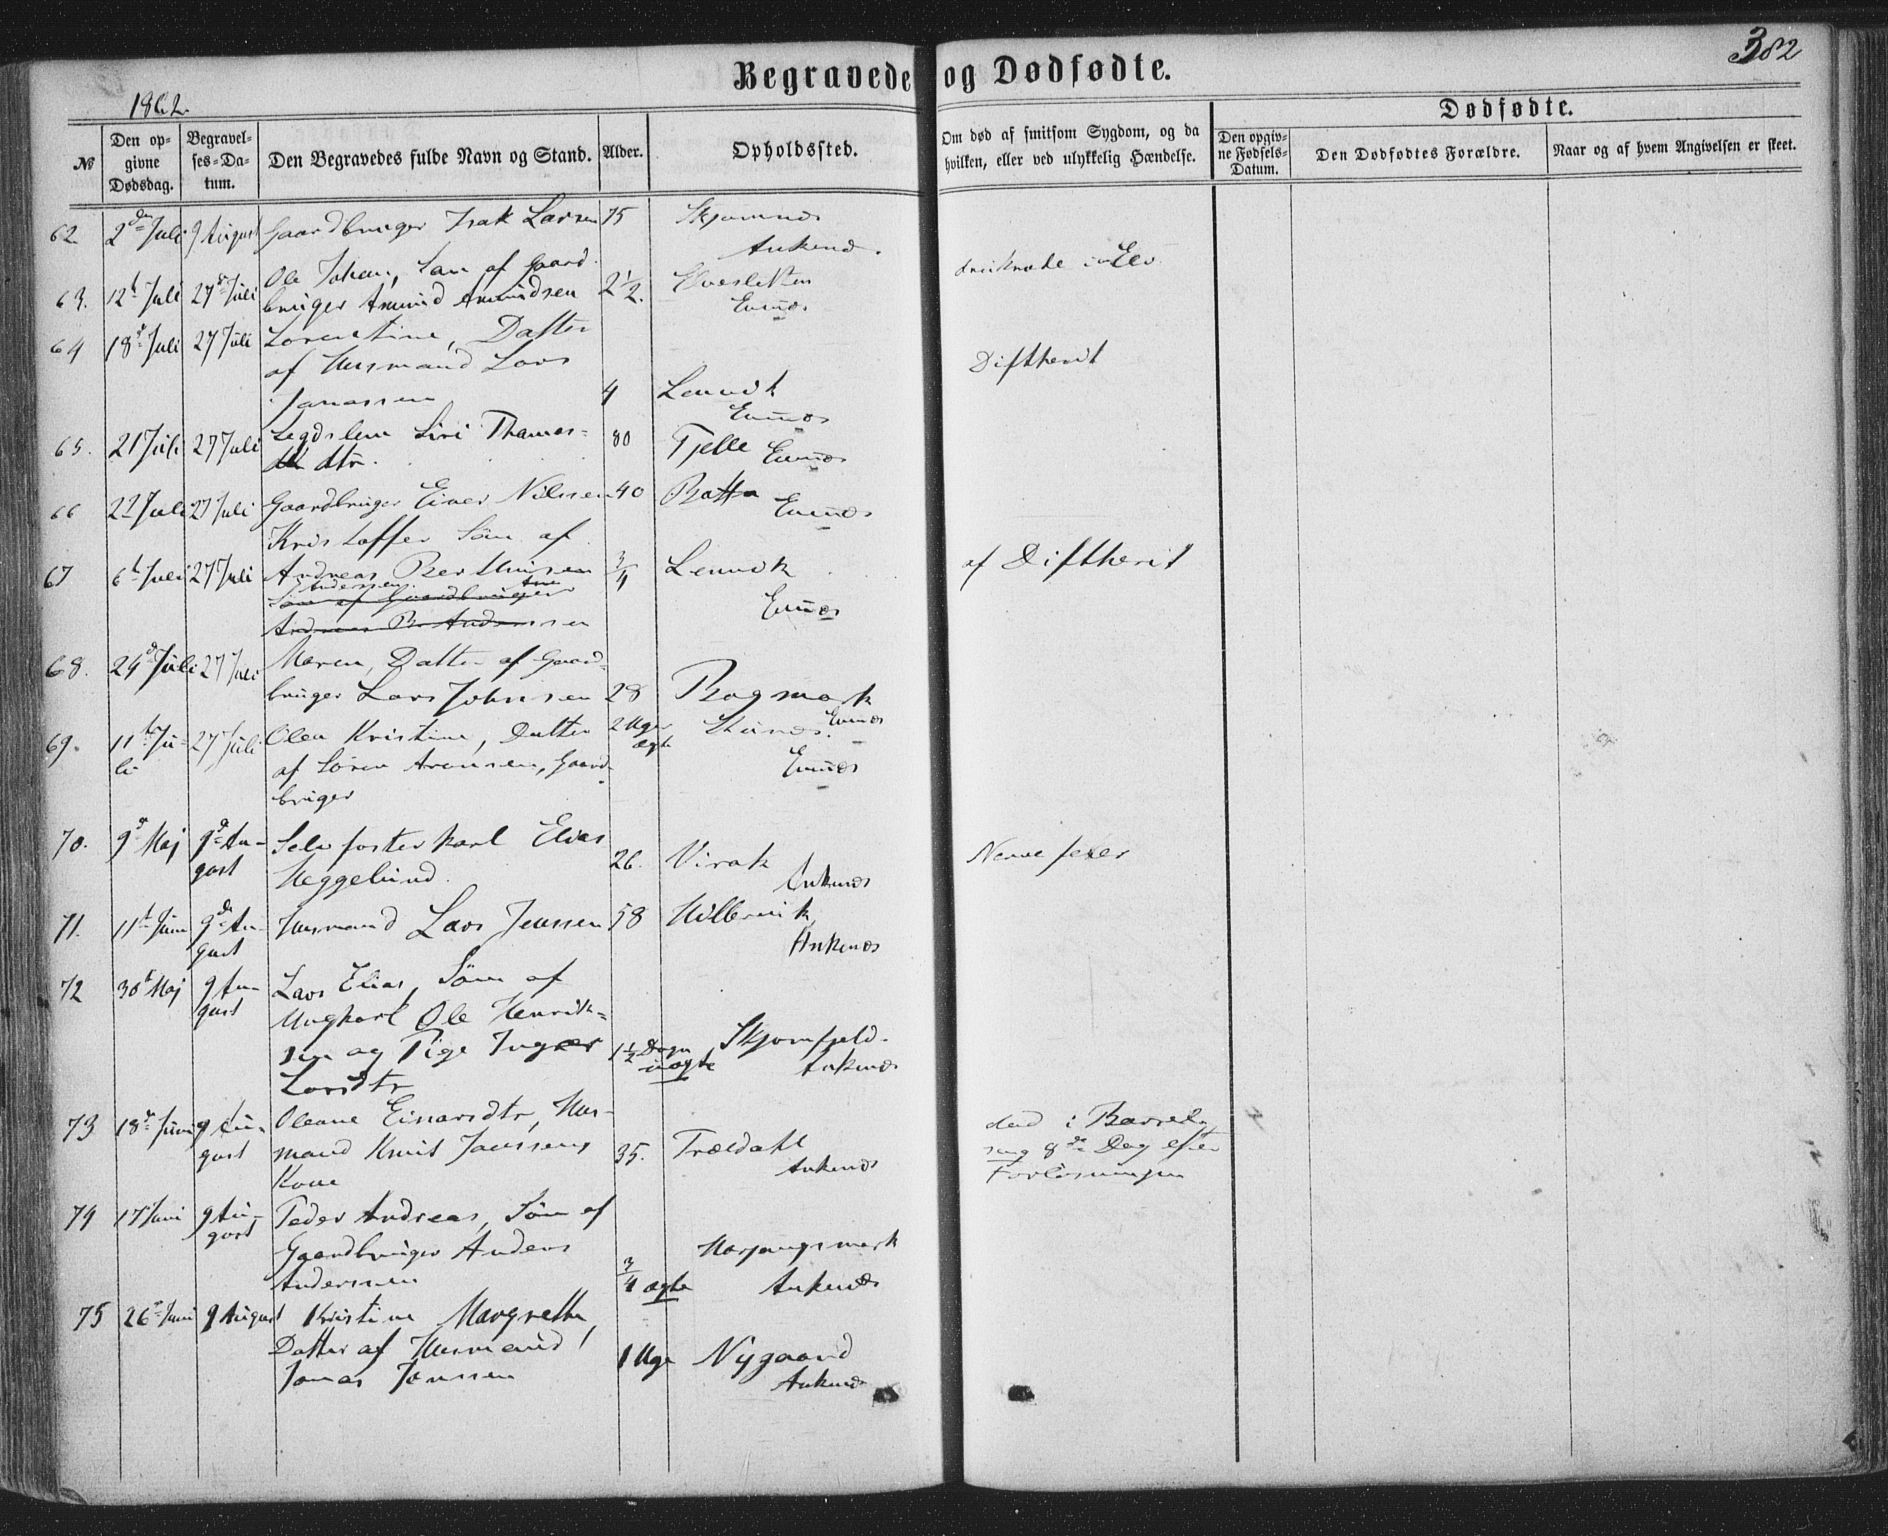 382
Begravede og Dødfødte.
1862.
Dødfødte.
№
Den op-
givne
Dødsdag.
Begravel-
ses-Da-
tum.
Den Begravedes fulde Navn og Stand.
Alder.
Opholdssted.
Om død af smitsom Sygdom, og da
hvilken, eller ved ulykkelig Hændelse.
Den opgiv-
ne Fødsels-
Datum.
Den Dødfødtes Forældre.
Naar og af hvem Angivelsen er skeet.
62. 2den Juli 9 August Gaardbruger Isak Larsen 75 Skjomnes
Ankenes.
63. 12t Juli 27de Juli Ole Johan, Søn af Gaard-
bruger Amund Amundsen 2 1/2. Elvesletten
Evenæs
druknede i en Elv.
64 18de Juli 27 Juli Lorentine, Datter
af Husmand Lars
Jonassen 4 Lenvik
Evenæs
Diftherit
65. 21 Juli 27 Juli Legdslem Siri Thomas-
dtr. 80 Tjelle Evenæs
66 22 Juli 27 Juli Gaardbruger Einer Nilssen 40 Botten
Evenæs
67 6t Juli 27 Juli Kristoffer Søn af
Andreas Berthinsen 3/4 Lenvik
Anderssen
Søn af Gaardbruger
Andreas B. Anderssen
Evenæs
af Diftherit
68. 24de Juli 27 Juli Maren, Datter af Gaard-
bruger Lars Johnsen 28 Bogsmark
Evenæs
69. 11te Ju-
li 27 Juli Olea Kristine, Datter
af Søren Aronsen, Gaard-
bruger 2 Uger
ægte
Evenæs
70. 9de Maj 9de Au-
gust Selvfosterkarl Elias
Heggelund. 26. Virak
Ankenæs
Nervefeber
71. 11te Juni 9de Au-
gust Husmand Lars Jenssen 58
Ankenæs
72 30t Maj 9 Au-
gust Lars Elias, Søn af
Ungkarl Ole Henrik-
sen og Pige Inger
Larsdtr 1 1/2 Døgn
uægte Skjomfjeld.
Ankenæs
73 18de Juni 9 Au-
gust Oleane Einarsdtr, Hus-
mand Knut Janssens
Kone 35. Trældahl
Ankenæs
død i Barsel-
seng 8de Dag efter
Forløsningen
74 17 Juni 9 Au-
gust Peder Andreas, Søn af
Gaardbruger Anders
Anderssen 3/4 ægte Herjangsmark
Ankenæs
75 26de Juni 9 August Kristine Margrethe,
Datter af Husmand
Jonas Jonssen 1 Uge Nygaard
Ankenæs